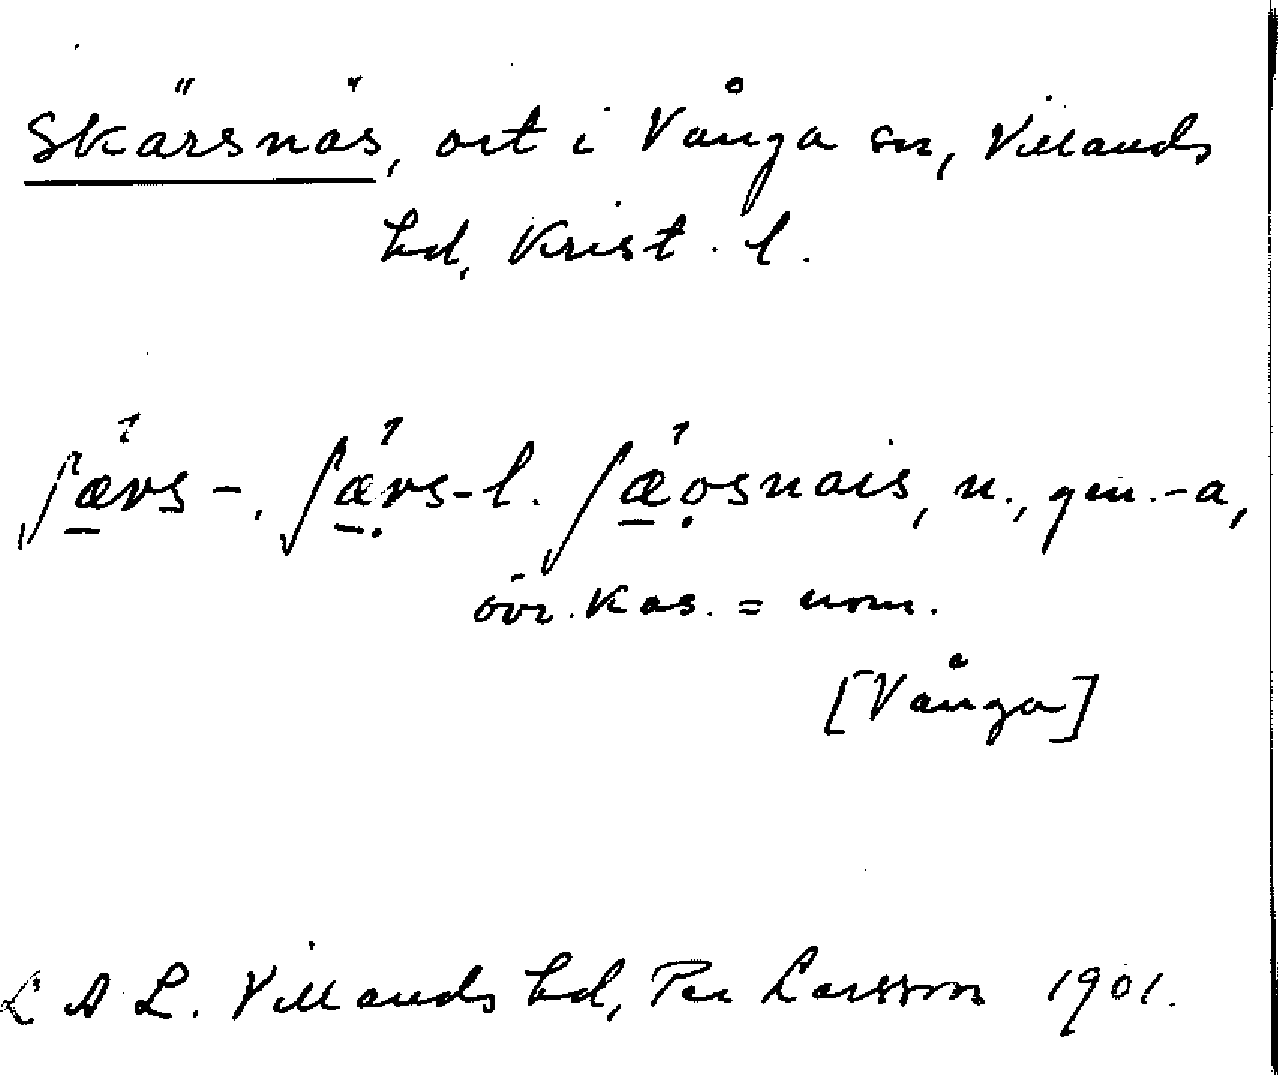 Skärsnäs, ort i Vånga sn, Villands
hd, Krist. l.
ʃæ̱rs-, ʃæ̱ṛs- l. ʃæ̱ọsnais, n., gen. -a,
övr. kas. = nom.
[Vånga]
L A L. Villands hd, Per Larsson 1901.